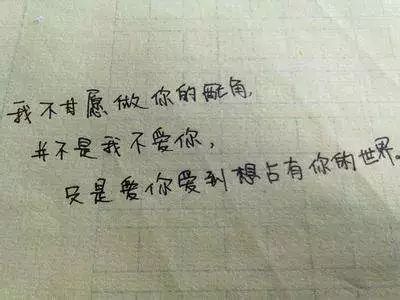 我不甘愿做你的配角,
并不是我不爱你,
只是爱你爱到想占有你的世界。